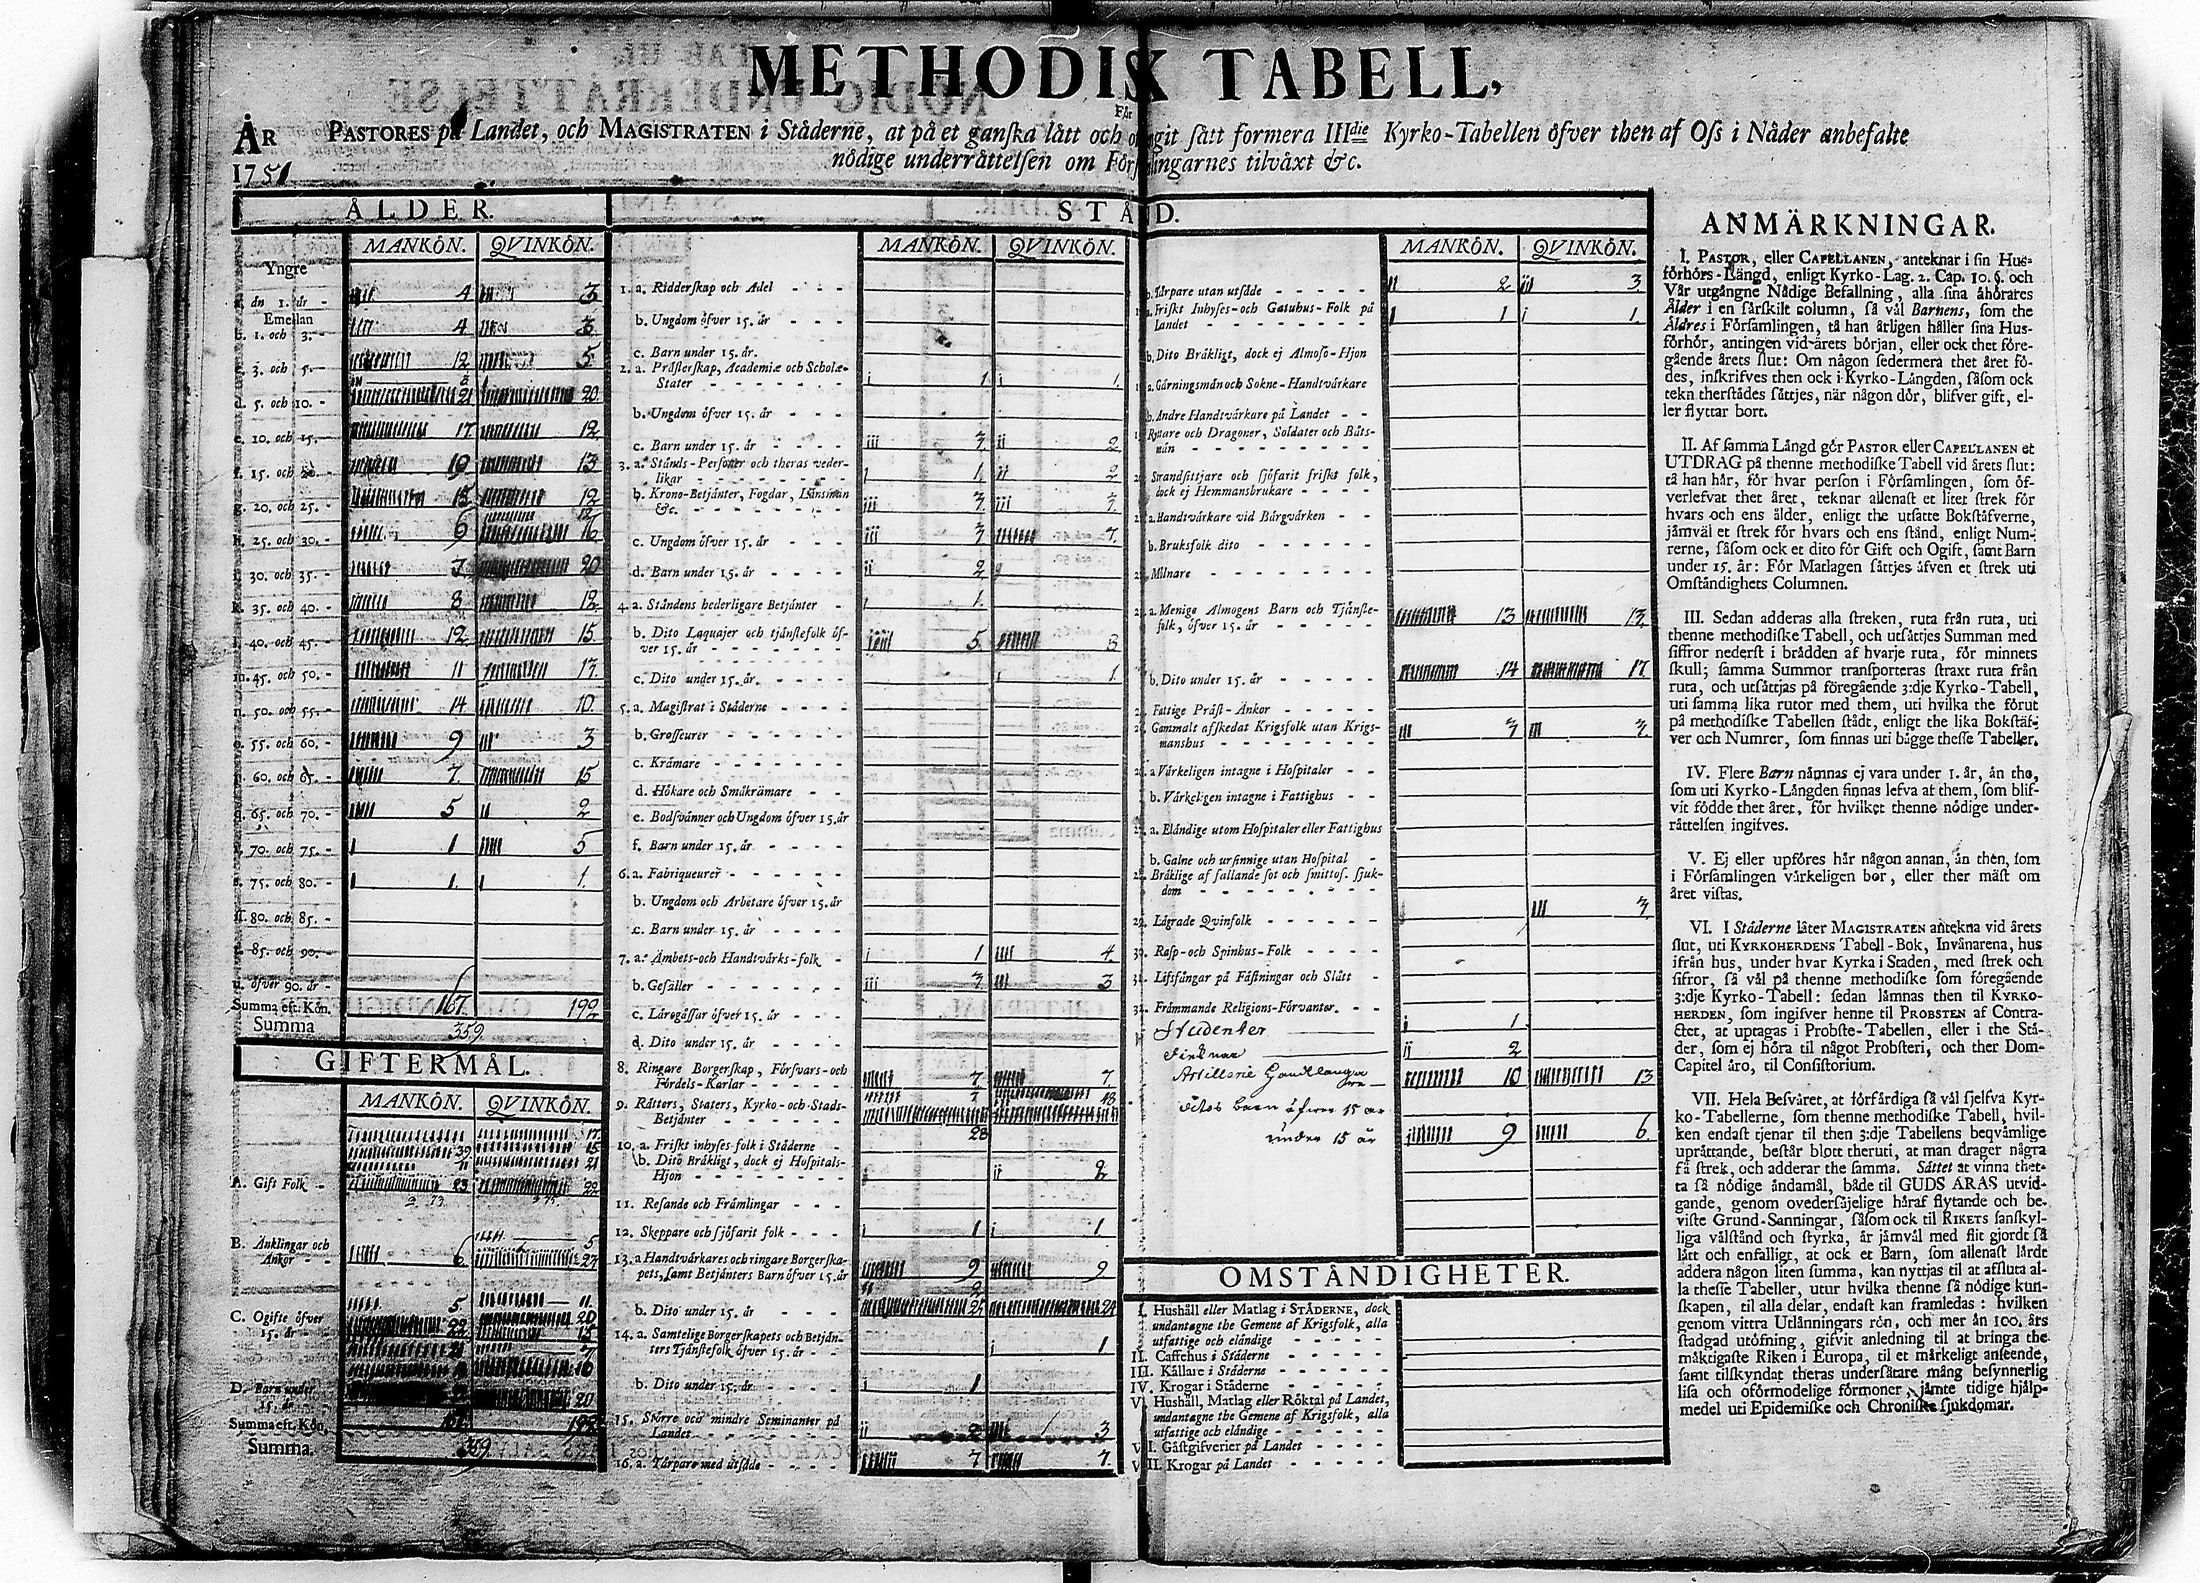 METHODISK TABELL,
För
ÅR PASTORES på Landet, och MAGISTRATEN i Ståderne, at på et ganska lätt och ogit sått formera IIIdie Kyrko-Tabellen öfver then af Oss i Nåder anbefalte
1751 nödige underråttelsen om Försingarnes tilväxt &c.
ÅLDER.
MANKÖN. QVINKÖN.
Yngre
än 1. år - 4 3
Emellan
b. 1. och 3. - 4 3
c. 3. och 5. - 12 5
d. 5. och 10. - 21 20
e. 10. och 15. - 17 12
f. 15. och 20. - 10 13
g. 20. och 25. - 13 12
12
h. 25. och 30. - 6 16
i. 30. och 35. - 7 20
k. 35. och 40. - 8 12
l. 40. och 45. - 12 15
m. 45. och 50. - 11 13
n. 50. och 55. - 14 10
o. 55. och 60. - 9 3
p. 60. och 65. - 7 15
q. 65. och 70. - 5 2
r. 70. och 75. - 1 5
s. 75. och 80. - 1 1
80. och 85. -
t. 85. och 90. -
u. öfver 90. år -
Summa eft. Kön. 167 192
Summa 359
GIFTERMÅL.
MANKÖN. QVINKÖN.
17
39 15
11 21
A. Gift Folk - 23 22
2 73
5
B. Änklingar och
Änkor - - 6 27
5 11
C. Ogifte öfver 22 20
15. år - 15
21 7
16
D. Barn under
15. år 20
Summa eft. Kön, 167 192
Summa. 359
STÅD.
MANKÖN. QVINKÖN.
1. a. Ridderskap och Adel - - -
b. Ungdom öfver 15. år - - -
c. Barn under 15. år.
2. a. Prästerskap, Academiæ och Scholæ-
Stater - - - - - - - 1 1
b. Ungdom öfver 15. år - - - -
c. Barn under 15. år - - - - 3 2
3. a. Stånds-Personer och theras veder-
likar - - - - - - - 1 2
b. Krono-Betjänter, Fogdar, Länsmän
&c. - - - - - - - 3 3
c. Ungdom öfver 15. år - - - 3 7
d. Barn under 15. år - - - - 2
4. a. Ståndens hederligare Betjänter - 1
b. Dito Laquajer och tjänstefolk öf-
ver 15. år - - - - - - 5 8
c. Dito under 15. år. - - - - 1
5. a. Magistrat i Ståderne - - - -
b. Grosseurer - - - - - -
c. Krämare - - - - - - -
d. Hökare och Småkrämare - -
e. Bodsvänner och Ungdom öfver 15. år
f. Barn under 15. år - - - -
6. a. Fabriqueurer - - - - - -
b. Ungdom och Arbetare öfver 15. år
c. Barn under 15. år - - - -
7. a. Ämbets-och Handtvärks-folk - 1 4
b. Gesäller - - - - - - - 3 3
c. Läregåssar öfver 15. år - - -
d. Dito under 15. år - - - -
8. Ringare Borgerskap, Försvars-och
Fördels-Karlar - - - - - 7 7
9. Rätters, Staters, Kyrko-och Stads- 7 18
Betjänter - - - - - -
10. a. Friskt inhyses-folk i Ståderne - 28
b. Dito Bräkligt, dock ej Hospitals-
Hjon - - - - - - - - 2
11. Resande och Främlingar - - -
12. Skeppare och sjöfarit folk - - - 1 1
13. a Handtvärkares och ringare Borgerska-
pets, samt Betjänters Barn öfver 15. år 9 9
2
b. Dito under 15. år - - - 25 24
14. a. Samtelige Borgerskapets och Betjän-
ters Tjänstefolk öfver 15. år - - 1
b. Dito under 15. år - - - - 1
15. Större och mindre Seminanter på
Landet - - - - - - - 2 3
16. a. Tårpare med utsäde - - - - 7 7
MANKÖN. QVINKÖN.
b. Tårpare utan utsäde - - - - - 2 3
a. Friskt Inhyses-och Gatuhus-Folk på
Landet - - - - - - - - 1 1
b. Dito Bräkligt, dock ej Almoso-Hjon
a. Gärningsmän och Sokne-Handtvärkare
b. Andre Handtvärkare på Landet - -
Ryttare och Dragoner, Soldater och Båts-
män - - - - - - - - -
Strandsittjare och sjöfarit friskt folk,
dock ej Hemmansbrukare - - - -
a. Handtvärkare vid Bärgvärken - -
b. Bruksfolk dito - - - - - -
Mölnare - - - - - - - -
a. Menige Almogens Barn och Tjänste-
folk, öfver 15. år - - - - - - 13 13
b. Dito under 15. år - - - - - 14 17
Fattige Präst-Änkor - - - -
Gammalt afskedat Krigsfolk utan Krigs-
manshus - - - - - - - - 3 3
a Värkeligen intagne i Hospitaler - -
b. Värkeligen intagne i Fattighus - -
a. Eländige utom Hospitaler eller Fattighus
b. Galne och ursinnige utan Hospital -
28. Bräklige af fallande sot och smittos. sjuk-
dom - - - - - - - - -
29. Lägrade Qvinfolk - - - - - - 3
30. Rasp-och Spinhus-Folk - - - -
31. Lifsfångar på Fästningar och Slätt -
32. Främmande Religions-Förvanter. - -
Studenter 1
2
Artillerie Handtlangare 10 13
dito barn öfwer 15 år
under 15 år 9 6
OMSTÅNDIGHETER.
I. Hushåll eller Matlag i STÅDERNE, dock
undantagne the Gemene af Krigsfolk, alla
utfattige och eländige - - - - -
II. Caffehus i Ståderne - - - - -
III. Källare i Ståderne - - - - -
IV. Krogar i Ståderne - - - - -
V. Hushåll, Matlag eller Röktal på Landet,
undantagne the Gemene af Krigsfolk, alla
utfattige och eländige - - - - -
VI. Gästgifverier på Landet - - - -
VII. Krogar på Landet - - - - -
ANMÄRKNINGAR.
I. PASTOR, eller CAPELLANEN, anteknar i sin Hus-
förhörs-Längd, enligt Kyrko-Lag. 2. Cap. 10. §. och
Vår utgångne Nådige Befallning, alla sina åhörares
Ålder i en särskilt column, så väl Barnens, som the
Äldres i Församlingen, tå han årligen håller sina Hus-
förhör, antingen vid årets början, eller ock thet före-
gående årets slut: Om någon sedermera thet året fö-
des, inskrifves then ock i Kyrko-Längden, såsom ock
tekn therstädes sättjes, när någon dör, blifver gift, el-
ler flyttar bort.
II. Af samma Längd gör PASTOR eller CAPELLANEN et
UTDRAG på thenne methodiske Tabell vid årets slut:
tå han här, för hvar person i Församlingen, som öf-
verlefvat thet året, teknar allenast et litet strek för
hvars och ens ålder, enligt the utsatte Bokstäfverne,
jämväl et strek för hvars och ens stånd, enligt Num-
rerne, såsom ock et dito för Gift och Ogift, samt Barn
under 15. år: För Matlagen sättjes äfven et strek uti
Omständighets Columnen.
III. Sedan adderas alla streken, ruta från ruta, uti
thenne methodiske Tabell, och utsättjes Summan med
siffror nederst i brädden af hvarje ruta, för minnets
skull; samma Summor transporteras straxt ruta från
ruta, och utsättjas på föregående 3:dje Kyrko-Tabell,
uti samma lika rutor med them, uti hvilka the förut
på methodiske Tabellen städt, enligt the lika Bokstäf-
ver och Numrer, som finnas uti bägge thesse Tabeller.
IV. Flere Barn nämnas ej vara under 1. år, än the,
som uti Kyrko-Längden finnas lefva af them, som blif-
vit födde thet året, för hvilket thenne nödige under-
rättelsen ingifves.
V. Ej eller upföres här någon annan, än then, som
i Församlingen värkeligen bor, eller ther mäst om
året vistas.
VI. I Städerne läter MAGISTRATEN antekna vid årets
slut, uti KYRKOHERDENS Tabell-Bok, Invånarena, hus
ifrån hus, under hvar Kyrka i Staden, med strek och
sifror, så väl på thenne methodiske som föregående
3:dje Kyrko-Tabell: sedan lämnas then til KYRKO-
HERDEN, som ingifver henne til PROBSTEN af Contra-
ctet, at uptagas i Probste-Tabellen, eller i the Stä-
der, som ej höra til något Probsteri, och ther Dom-
Capitel äro, til Consistorium.
VII. Hela Besväret, at förfärdiga så väl sjelfva Kyr-
ko-Tabellerne, som thenne methodiske Tabell, hvil-
ken endast tjenar til then 3:dje Tabellens beqvämlige
uprättande, består blott theruti, at man drager några
få strek, och adderar the samma. Sättet at vinna thet-
ta så nödige ändamål, både til GUDS ÄRAS utvid-
gande, genom ovedersäjelige häraf flytande och be-
viste Grund-Sanningar, såsom ock til RIKETS sanskyl-
liga välstånd och styrka, är jämväl med flit gjordt så
lätt och enfalligt, at ock et Barn, som allenast lärdt
addera någon liten summa, kan nyttjas til at afsluta al-
la thesse Tabeller, utur hvilka thenne så nödige kun-
skapen, til alla delar, endast kan framledas: hvilken
genom vittra Utlänningars rön, och mer än 100. års
stadgad utöfning, gifvit anledning til at bringa the
mäktigaste Riken i Europa, til et märkeligt anseende,
samt tilskyndat theras undersåtare mång besynnerlig
lisa och oförmodelige förmoner, jämte tidige hjälp-
medel uti Epidemiske och Chroniske sjukdomar.